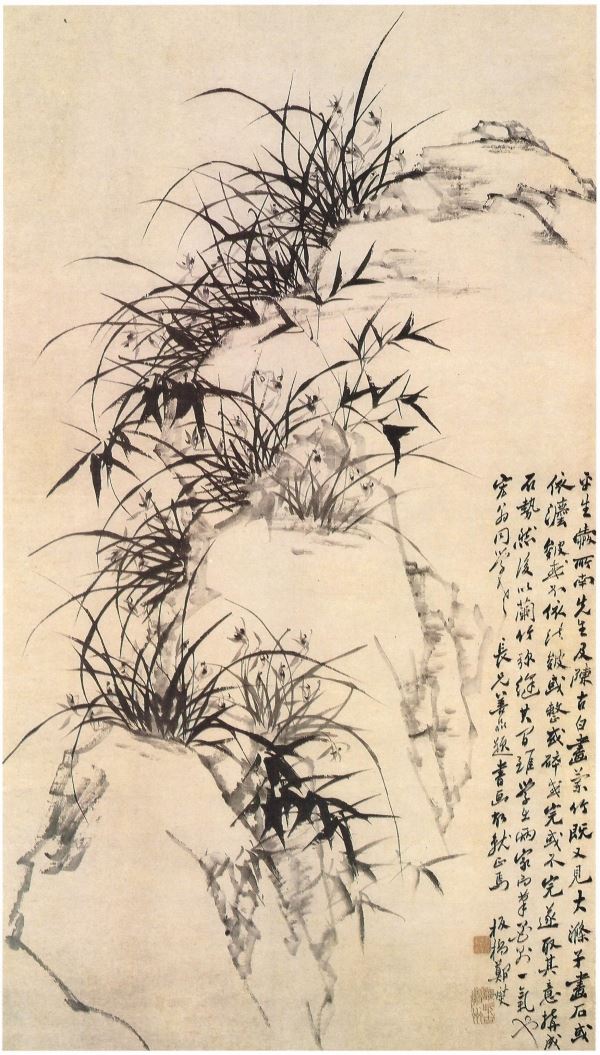 平生愛所南先生及陳古白畫蘭竹既又見大滌子畫石或
依灋皴或不依法皴或整或碎或完或不完遂取其意搆成
石勢然後以蘭竹彌縫其間雖學出兩家而筆墨則一氣也
宏翁同學老長兄善品題書畫故就正焉 板橋鄭燮